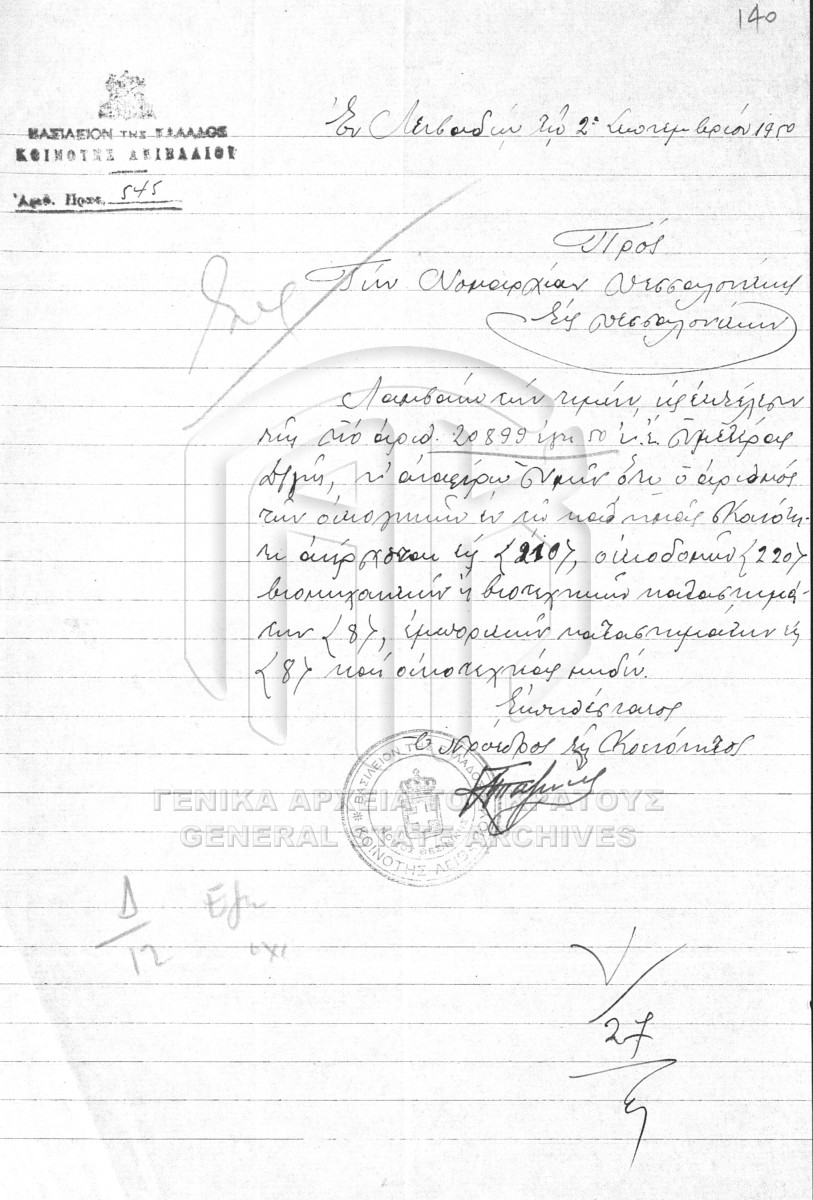 140
ΒΑΣΙΛΕΙΟΝ ΤΗΣ ΕΛΛΑΔΟΣ
ΚΟΙΝΟΤΗΣ ΛΕΙΒΑΔΙΟΥ
Ἀριθ. Πρωτ. 545
Ἐν Λειβαδίῳ τῇ 2α Σεπτεμβρίου 1950
Πρός
Τήν Νομαρχίαν Θεσσαλονίκης
Εἰς Θεσσαλονίκην
Λαμβάνω τήν τιμήν, εἰς ἐκτέλεσιν
τῆς ὑπό ἀριθ. 20899 ἐγγ 50 ὑμετέρας
Δ/γῆς, ν' ἀναφέρω ὑμῖν ὅτι ὁ ἀριθμός
τῶν οἰκογενειῶν ἐν τῇ καθ' ἡμᾶς Κοινότη-
τι ἀνέρχεται εἰς {210}, οἰκοδομῶν {220}
βιομηχανικῶν ἤ βιοτεχνικῶν καταστημά-
των {8}, ἐμπορικῶν καταστημάτων εἰς
{8} καί οἰκοτεχνίας μηδέν.
Εὐπειθέστατος
Ὁ Πρόεδρος τῆς Κοινότητος
ΒΑΣΙΛΕΙΟΝ ΤΗΣ ΕΛΛΑΔΟΣ
ΚΟΙΝΟΤΗΣ
ΓΕΝΙΚΑ ΑΡΧΕΙΑ ΤΟΥ ΚΡΑΤΟΥΣ
GENERAL STATE ARCHIVES
Δ
12
ὄχι
27